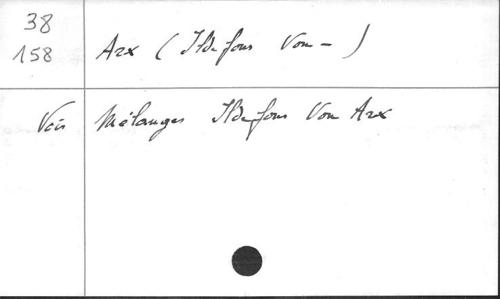 38
158
Arx (Ildefons Von –)
Voir Mélanges Ildefons Von Arx